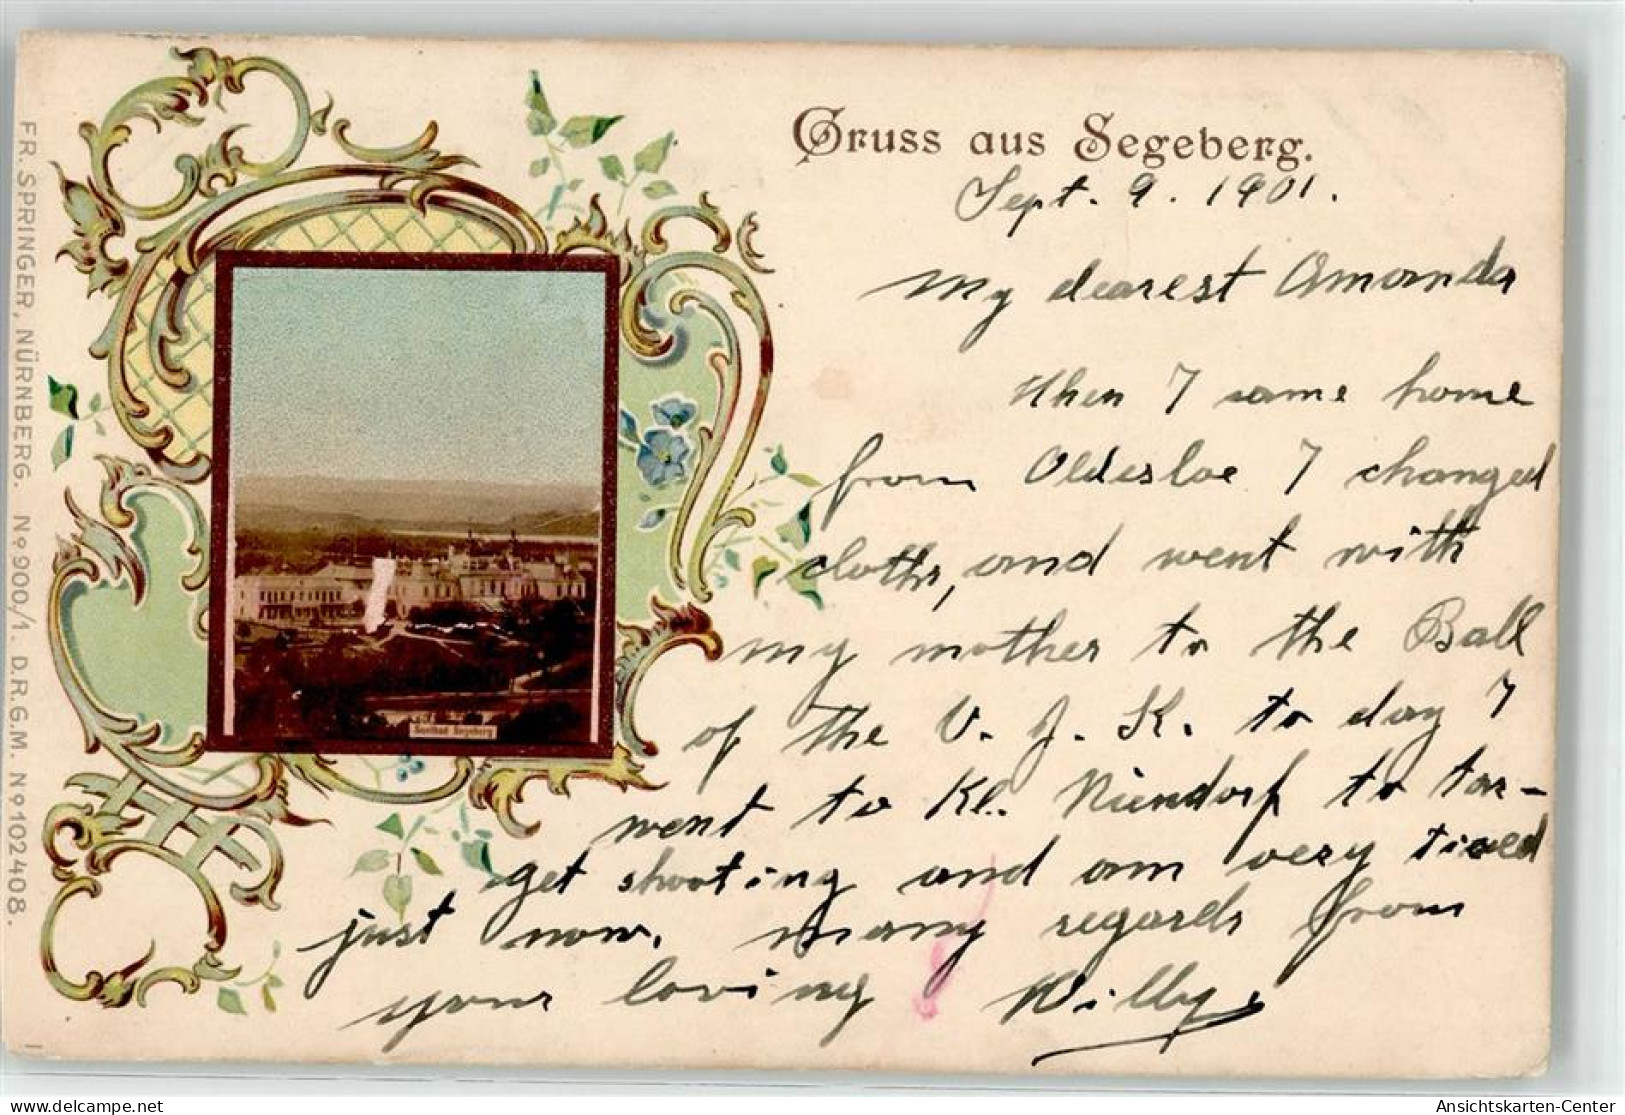 Gruss aus Segeberg.
Sept. 9. 1901.
My dearest Amanda
When I came home
from Oldesloe I changed
cloths, and went with
my mother to the Ball
of the V. J. K. to day I
went to Kl. Niendorf to tar-
get shooting and am very tired
just now. Many regards from
your loving Willy
Soolbad Segeberg
FR. SPRINGER, NÜRNBERG. No 900/1. D.R.G.M. No 102408.
delcampe.net
Ansichtskarten-Center